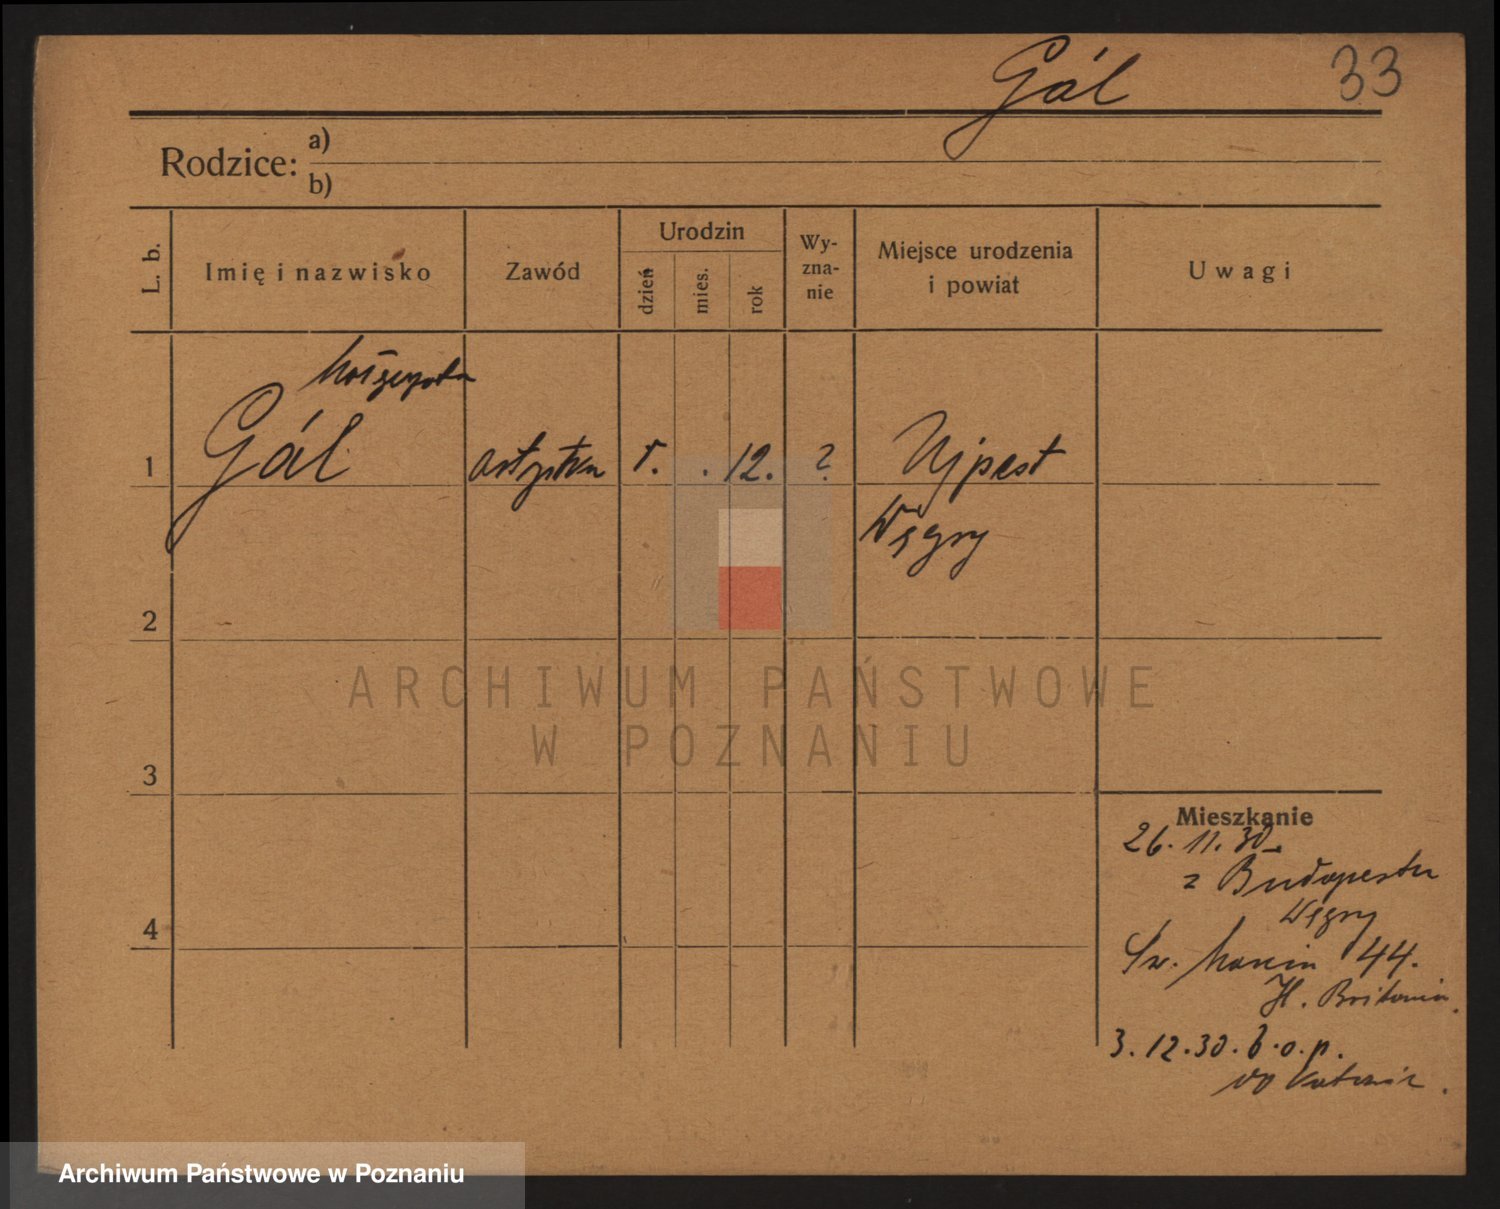 Gál 33
Rodzice: a)
b)
L. b. Imię i nazwisko Zawód Urodzin dzień mies. rok Wy-zna-nie Miejsce urodzenia i powiat Uwagi
1 Gál artystka r. . 12. ? Ujpest
Węgry
2
3
4
Mieszkanie
26. 11. 30.
z Budapestu
Węgry
Św. Marcin 44.
H. Britania.
3. 12. 30. b. o. p.
do Katowic.
ARCHIWUM PAŃSTWOWE
W POZNANIU
Archiwum Państwowe w Poznaniu